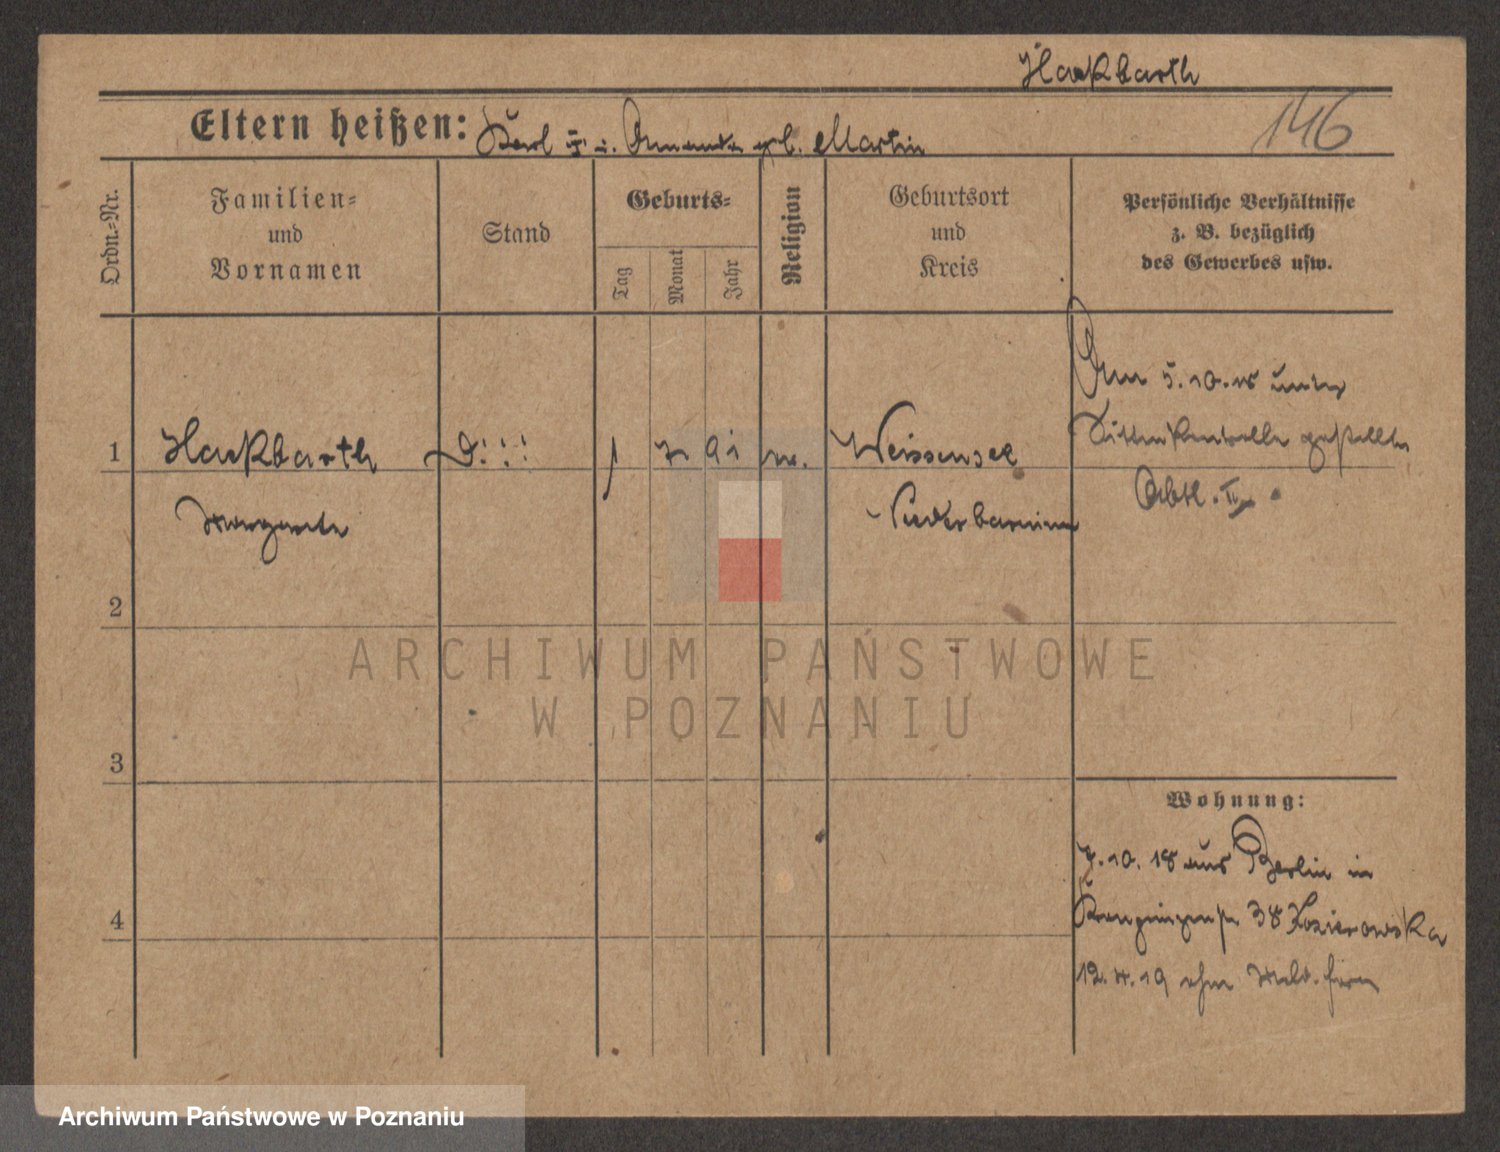 Hackbarth
146
Eltern heißen: Karl u. Amanda geb. Martin
Ordn.-Nr.
Familien-
und
Vornamen
Stand
Geburts-
Tag
Monat
Jahr
Religion
Geburtsort
und
Kreis
Persönliche Verhältnisse
z. B. bezüglich
des Gewerbes usw.
Am 5.10.18 unter
Sittenkontrolle gestellt
Abtl. II
1 Hackbarth 1 7 91 Weissensee
Margarete Niederbarnim
2
3
4
Wohnung:
7.10.18 aus Berlin in
38 Kozierowska
12.4.19 ohne Meld.
ARCHIWUM PAŃSTWOWE
W POZNANIU
Archiwum Państwowe w Poznaniu